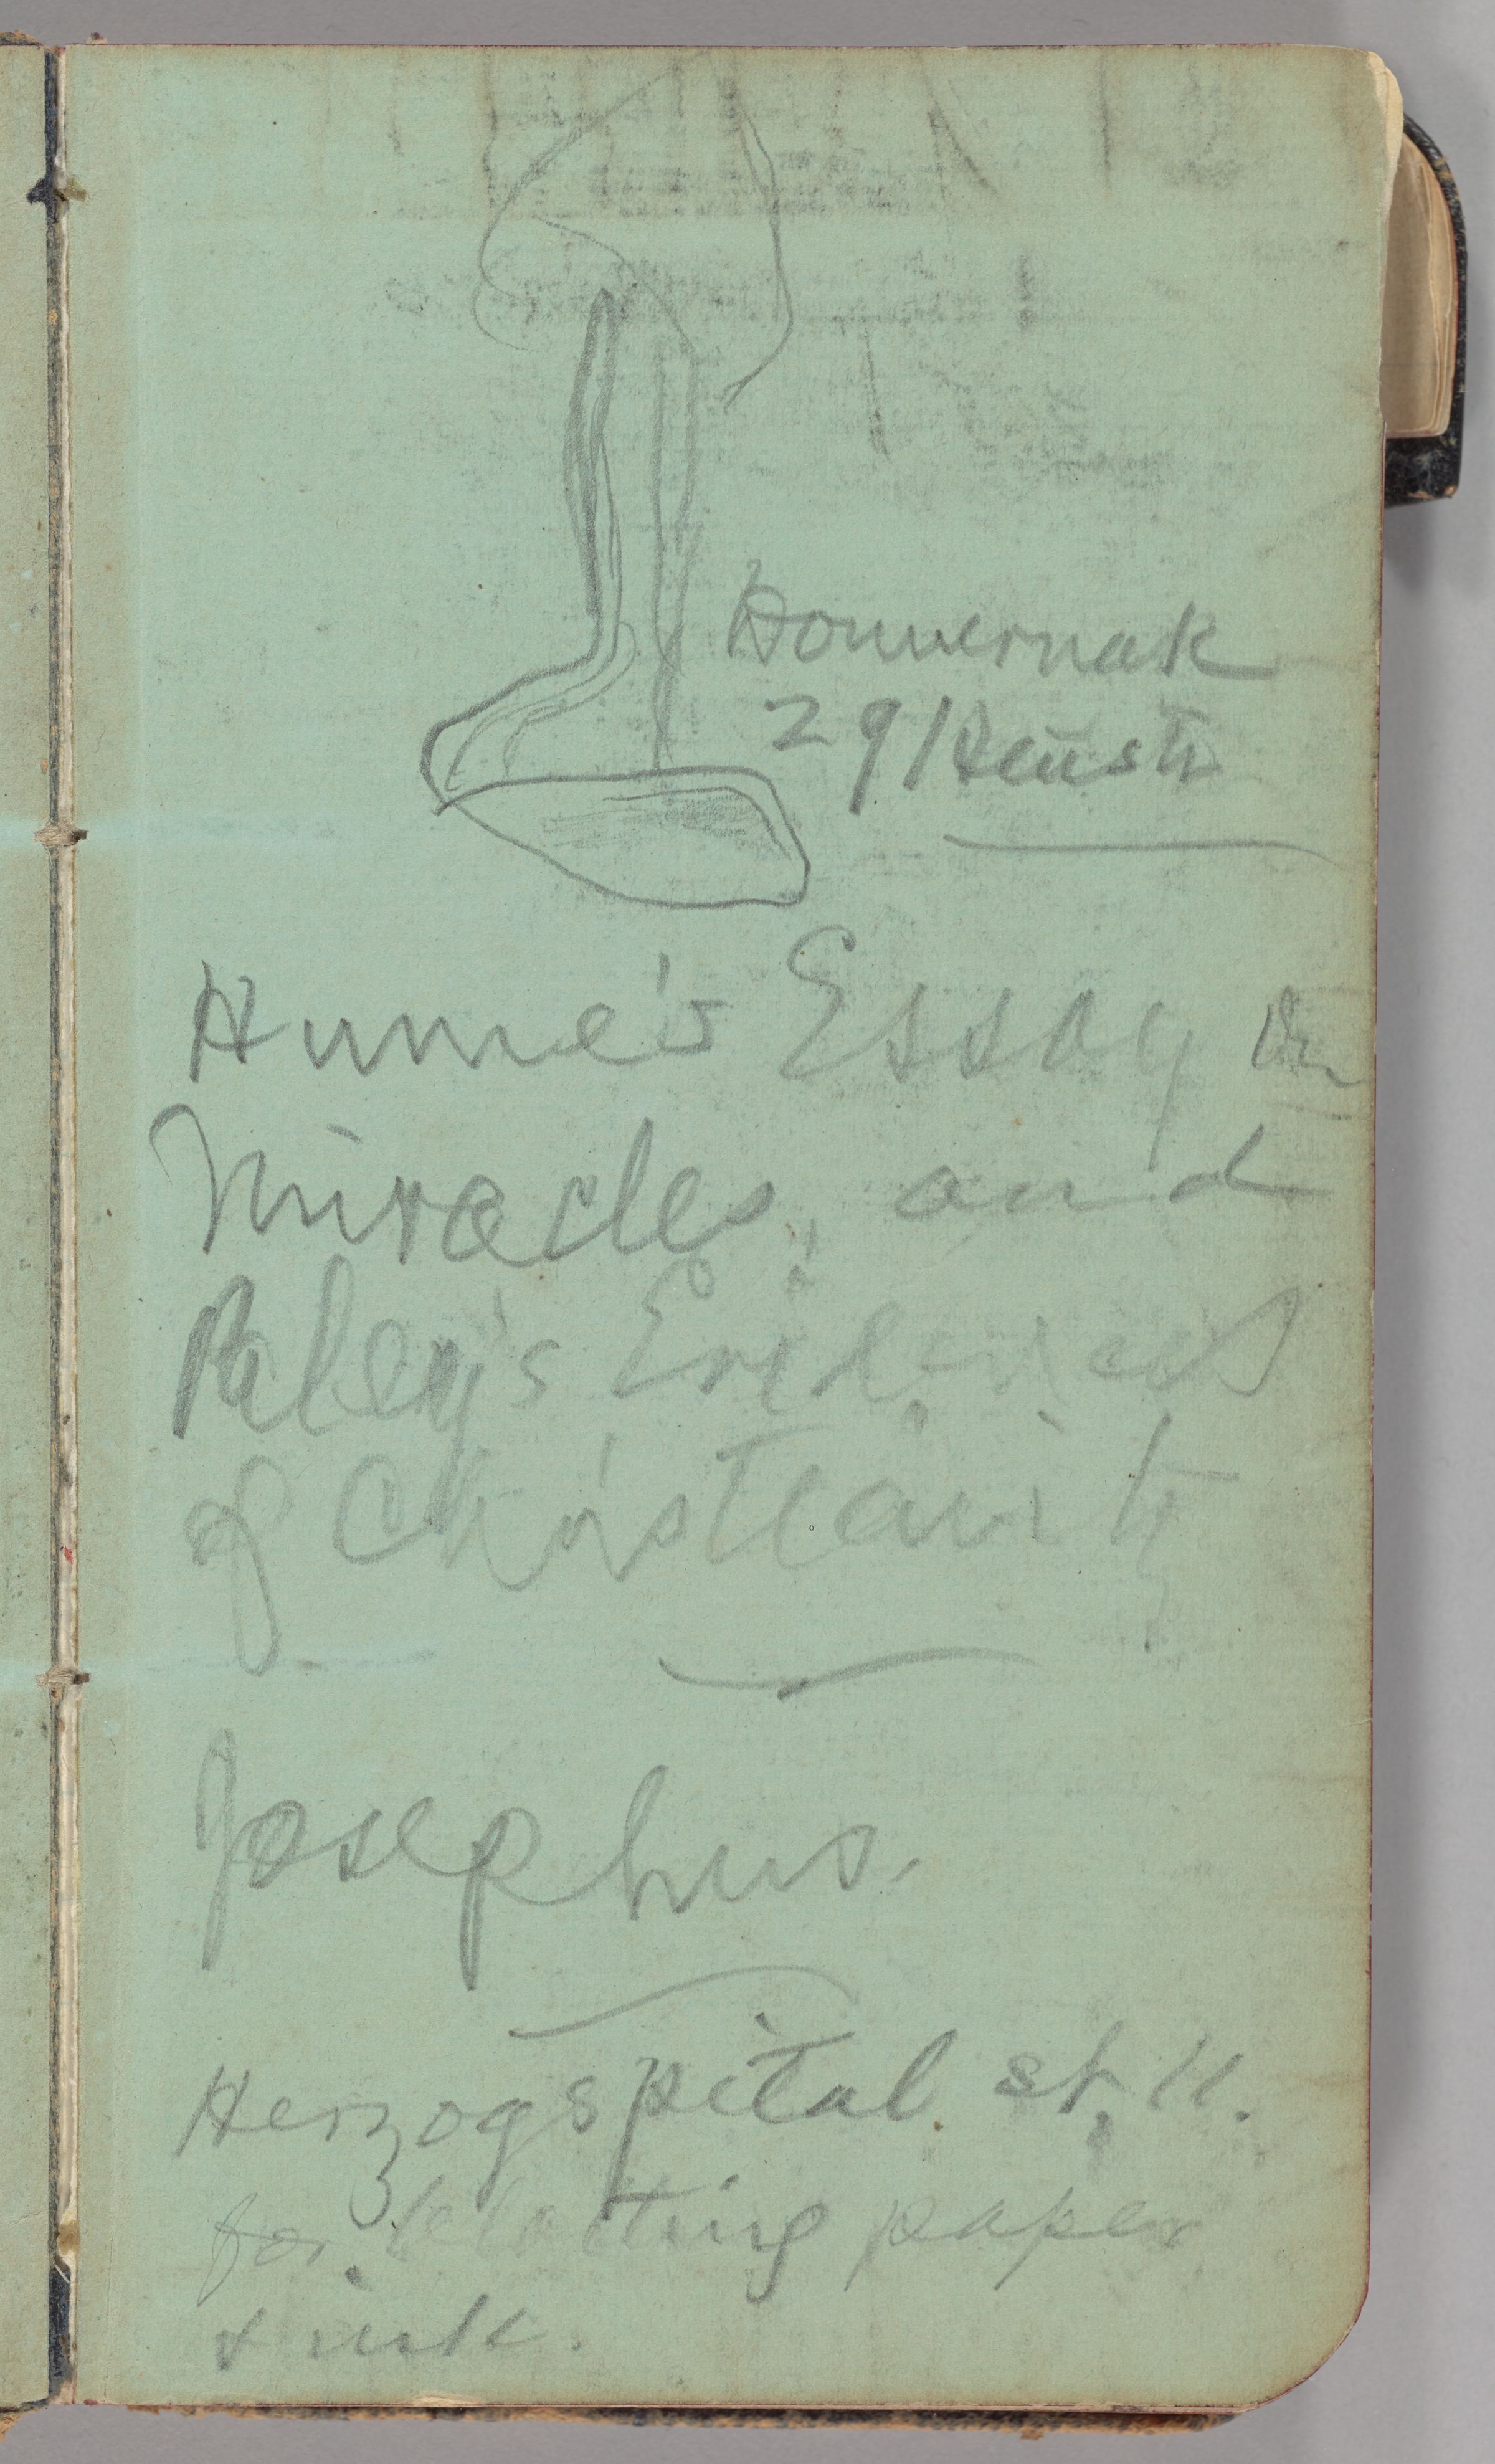 29
Hume's Essay on
Miracles, and
Paley's Evidences
of Christianity
Josephus.
Herzogspital st. 11.
for blotting paper
& ink.